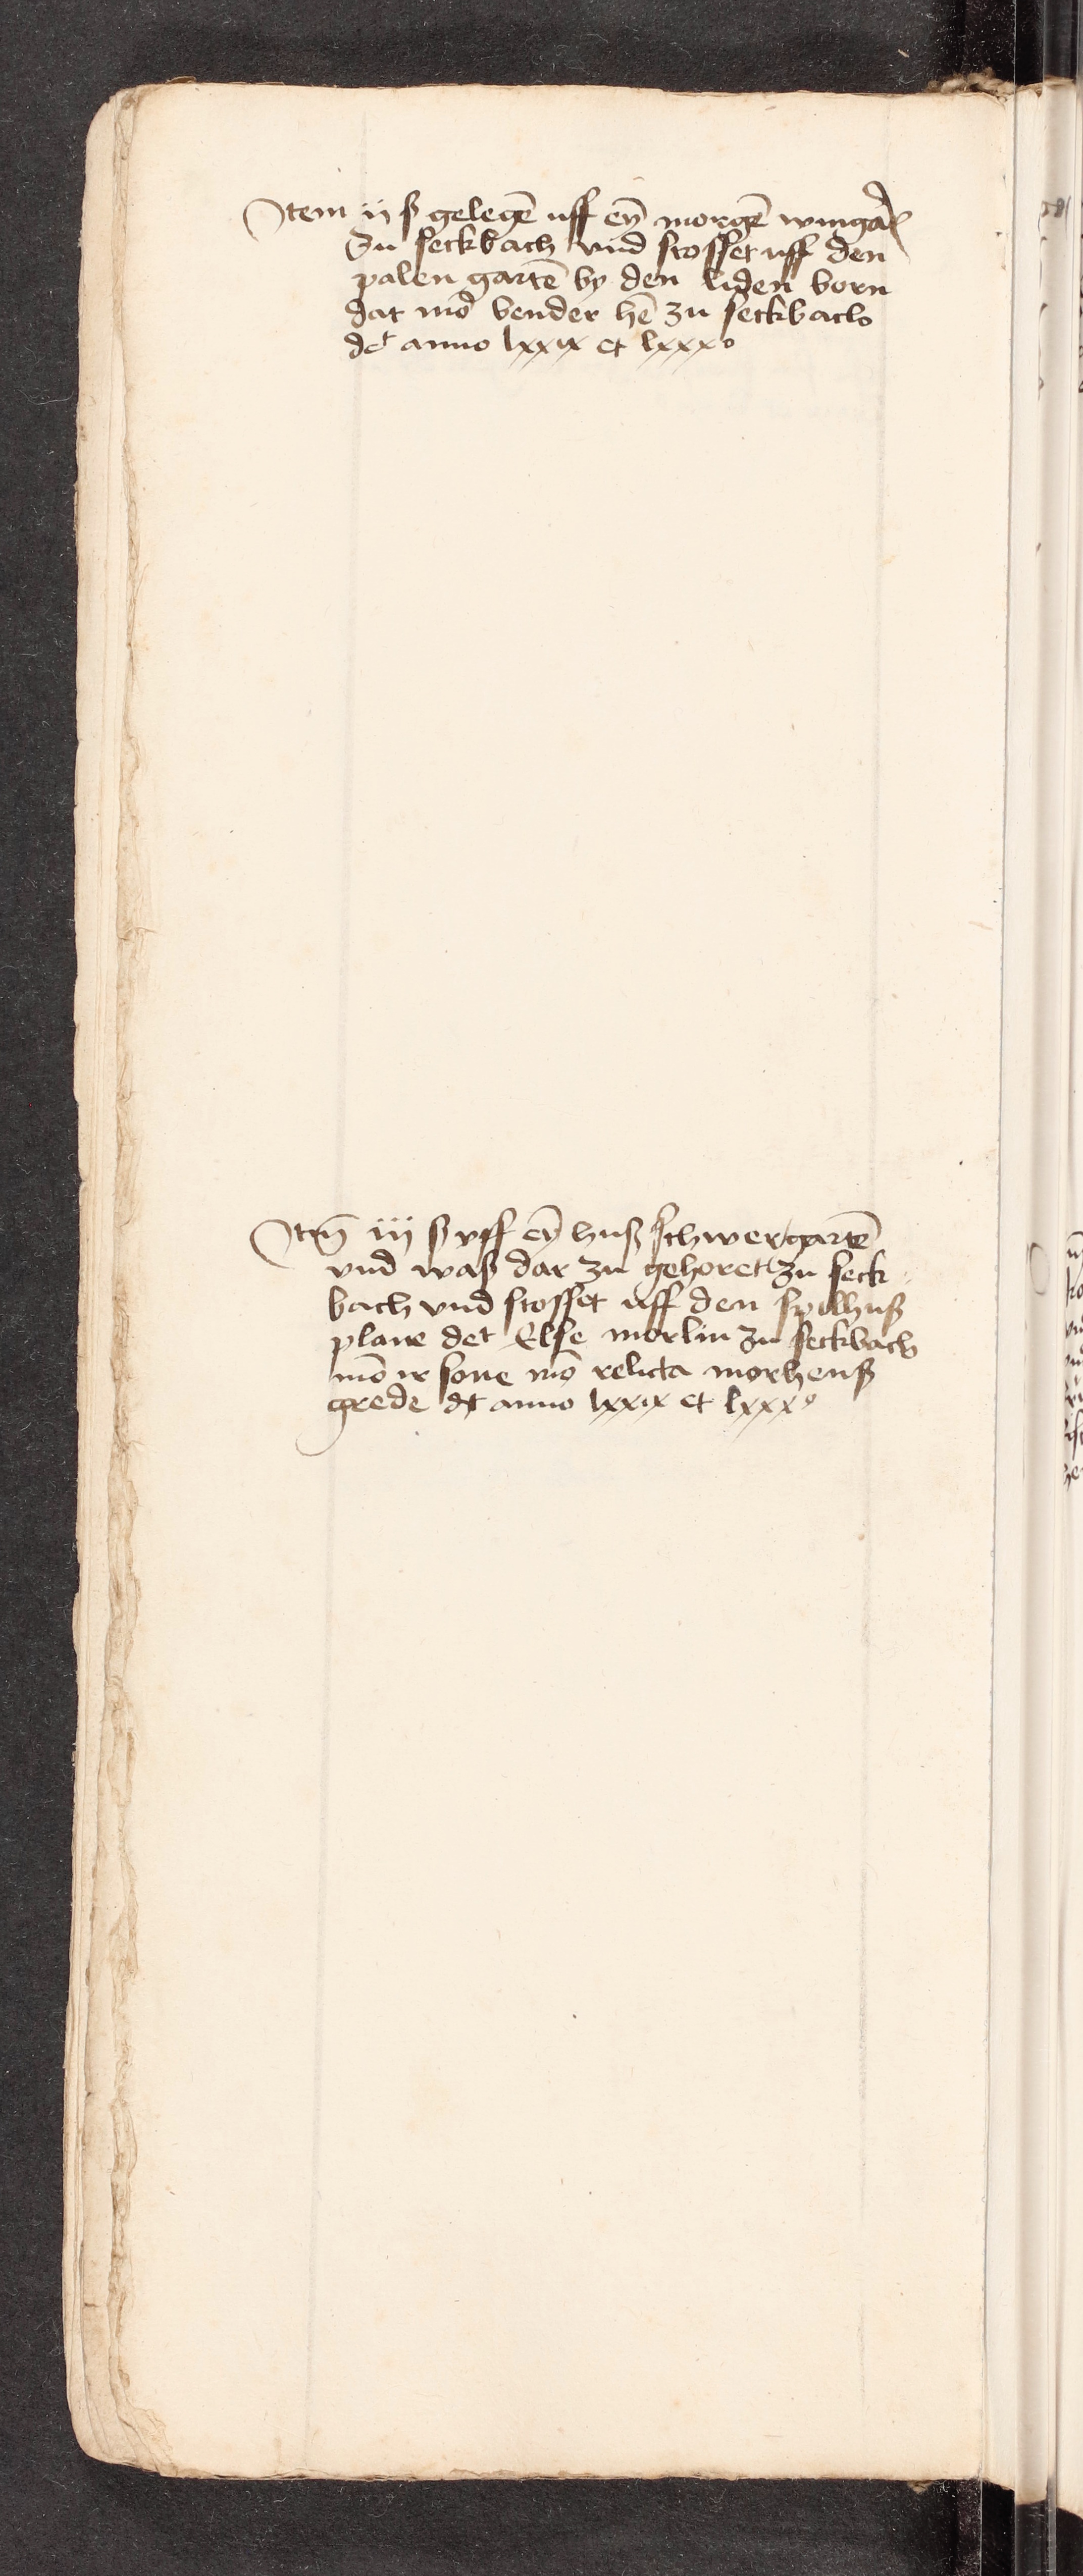 Item ij ß gelegē uff eyn̄ morgē wingard
Zu seckbach vnd stosset uff den
palen gartē by den liden born
dat mō bender hē zu seckbach
dt anno lxxix et lxxxo
Itm̄ iij ß vff eȳ huß schwer gartē
vnd waß dar zu gehoret zu seck
bach vnd stosset uff den spilhuß
plane det Else morlin zu seckbach
mō ir sone mō relicta morhenß
grede dt anno lxxix et lxxxo